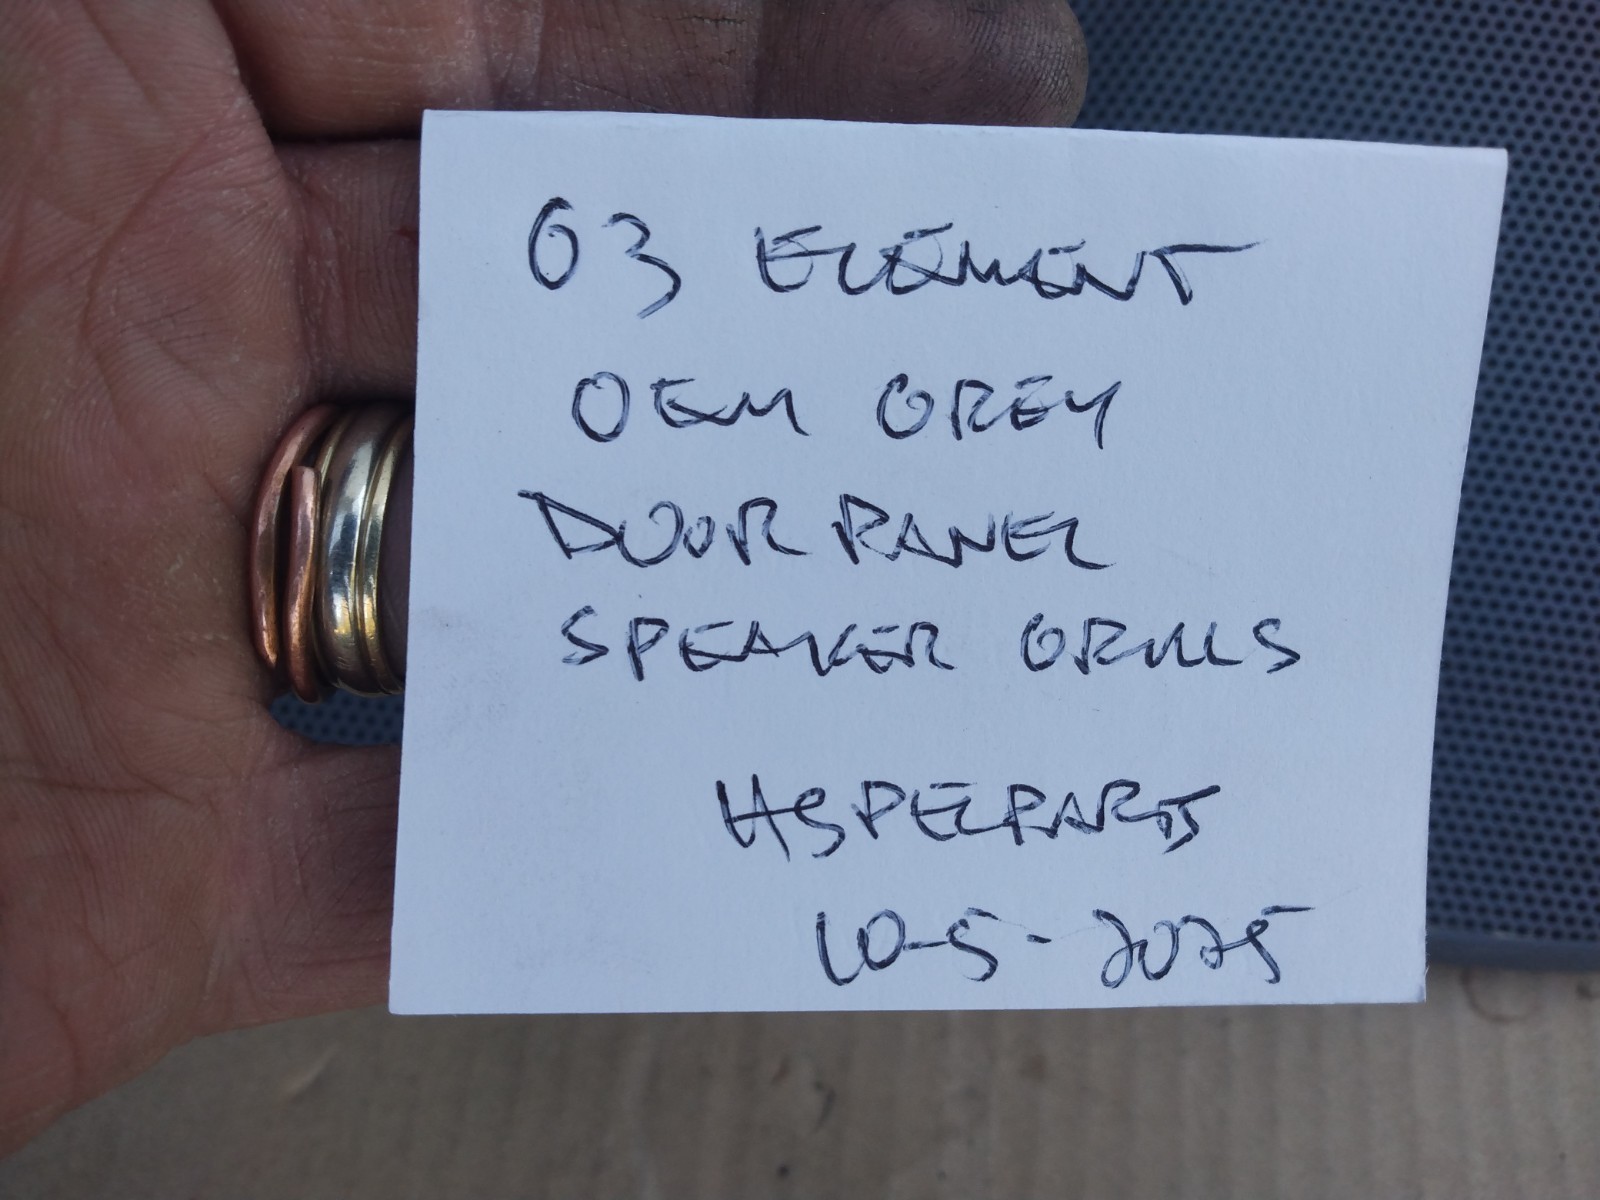 03 ELEMENT
OEM GREY
DOOR PANEL
SPEAKER GRILLS
HSPECPARTS
10-5-2025